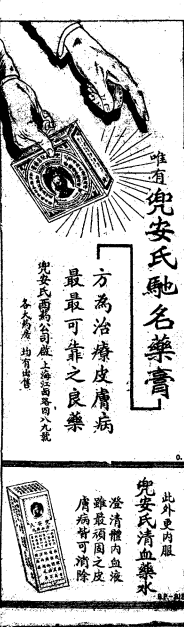 唯有兜安氏馳名藥膏
方為治療皮膚病
最最可靠之良藥
兜安氏西藥公司啟 上海江西路四八九號
各大藥房均有出售
此外更內服
兜安氏清血藥水
澄清體內血液
雖最頑固之皮
膚病皆可消除